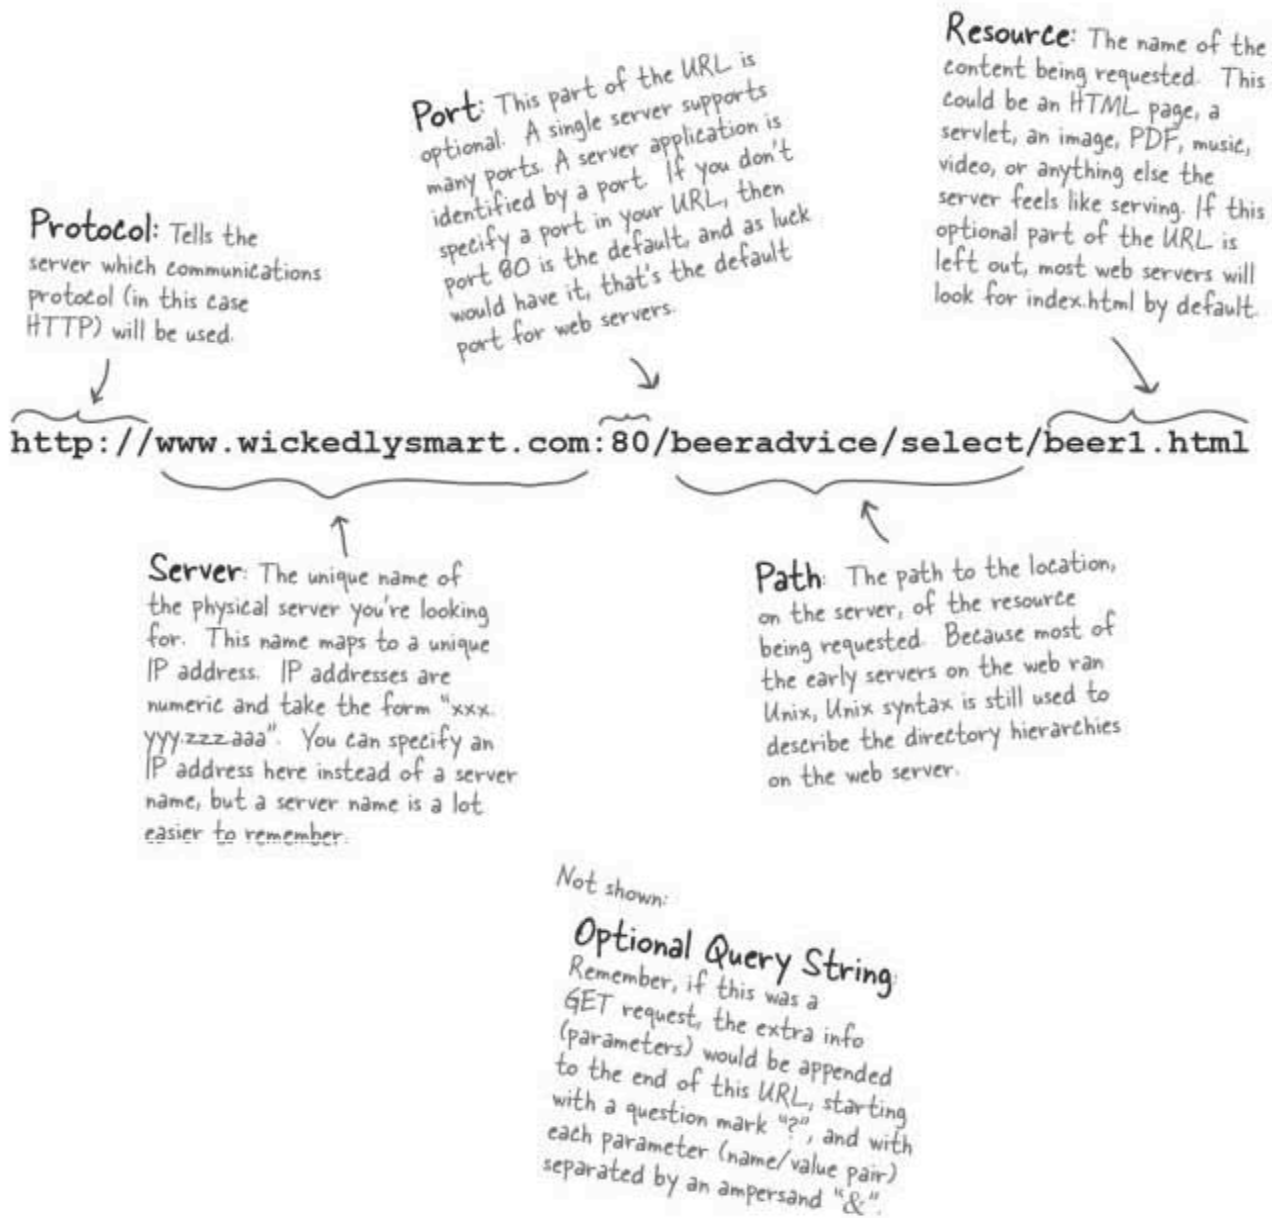 Protocol: Tells the
server which communications
protocol (in this case
HTTP) will be used.
Port: This part of the URL is
optional. A single server supports
many ports. A server application is
identified by a port. If you don't
specify a port in your URL, then
port 80 is the default, and as luck
would have it, that's the default
port for web servers.
Resource: The name of the
content being requested. This
could be an HTML page, a
servlet, an image, PDF, music,
video, or anything else the
server feels like serving. If this
optional part of the URL is
left out, most web servers will
look for index.html by default.
http://www.wickedlysmart.com:80/beeradvice/select/beer1.html
Server: The unique name of
the physical server you're looking
for. This name maps to a unique
IP address. IP addresses are
numeric and take the form "xxx.
yyy.zzz.aaa". You can specify an
IP address here instead of a server
name, but a server name is a lot
easier to remember.
Path: The path to the location,
on the server, of the resource
being requested. Because most of
the early servers on the web ran
Unix, Unix syntax is still used to
describe the directory hierarchies
on the web server.
Not shown:
Optional Query String:
Remember, if this was a
GET request, the extra info
(parameters) would be appended
to the end of this URL, starting
with a question mark "?", and with
each parameter (name/value pair)
separated by an ampersand "&".